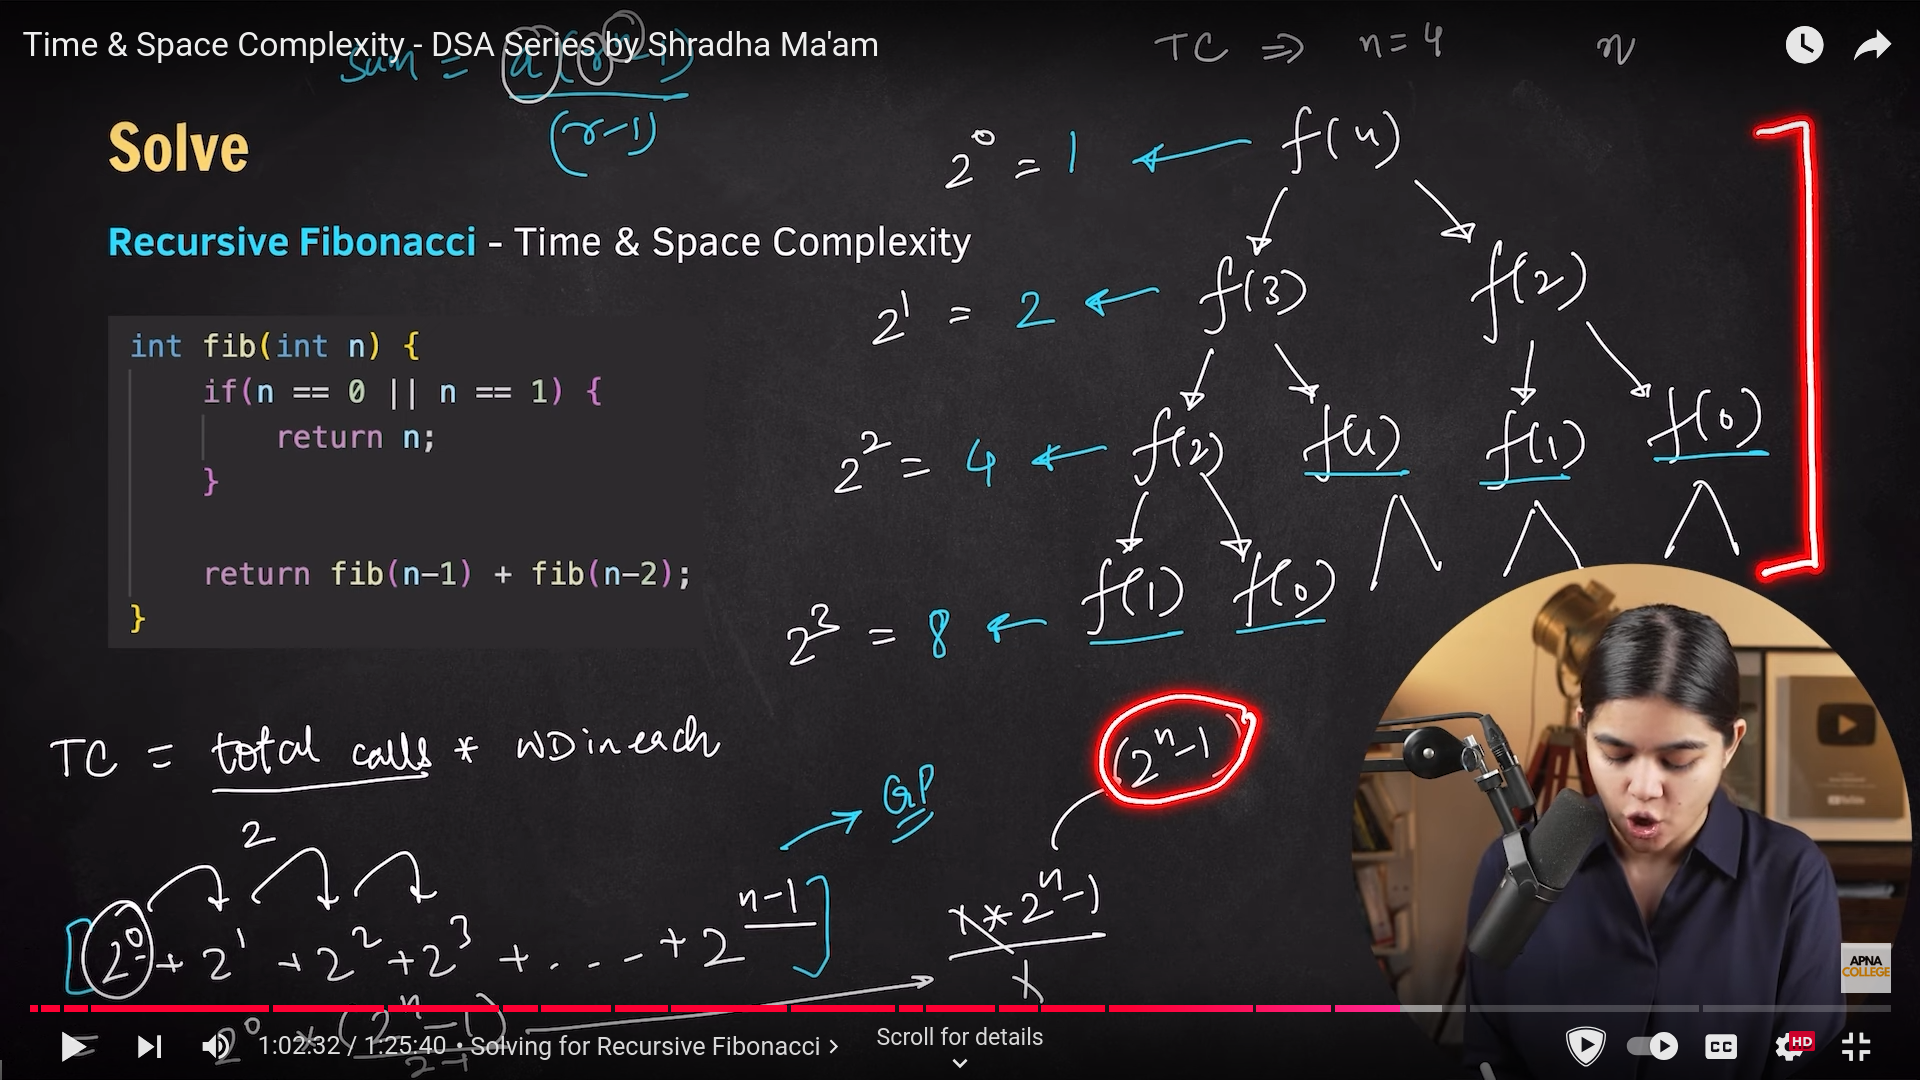 Time & Space Complexity - DSA Series by Shradha Ma'am
TC ⇒ n=4 n
Sum = a(rⁿ-1)
(r-1)
Solve
Recursive Fibonacci - Time & Space Complexity
int fib(int n) {
if(n == 0 || n == 1) {
return n;
}
return fib(n-1) + fib(n-2);
}
2⁰ = 1 ← f(4)
2¹ = 2 ← f(3) f(2)
2² = 4 ← f(2) f(1) f(1) f(0)
2³ = 8 ← f(1) f(0)
TC = total calls * WD in each
(2ⁿ-1)
→ GP
2
[2⁰ + 2¹ + 2² + 2³ + ... + 2ⁿ⁻¹]
1 * 2ⁿ-1
1
= 2⁰ * (2ⁿ-1)
2-1
APNA
COLLEGE
1:02:32 / 1:25:40 • Solving for Recursive Fibonacci >
Scroll for details
CC
HD